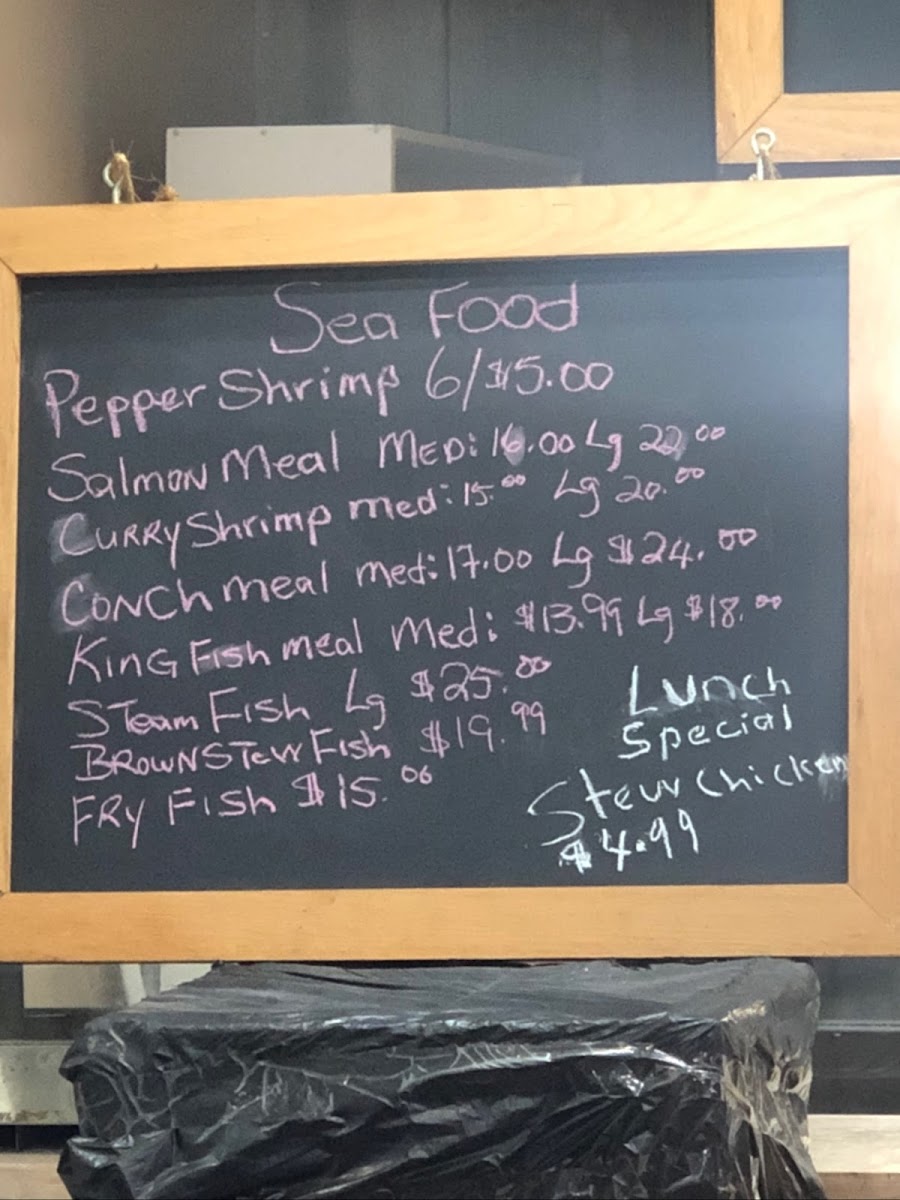 Sea Food
Pepper Shrimp 6/$5.00
Salmon Meal MED: 16.00 Lg 22.00
CURRY Shrimp med: 15.00 Lg 20.00
CONCh meal med: 17.00 Lg $24.00
KING Fish meal Med: $13.99 Lg $18.00
STeam FISH Lg $25.00
BROWN STew Fish $19.99
FRY FISH $15.00
Lunch
Special
Stew chicken
$4.99